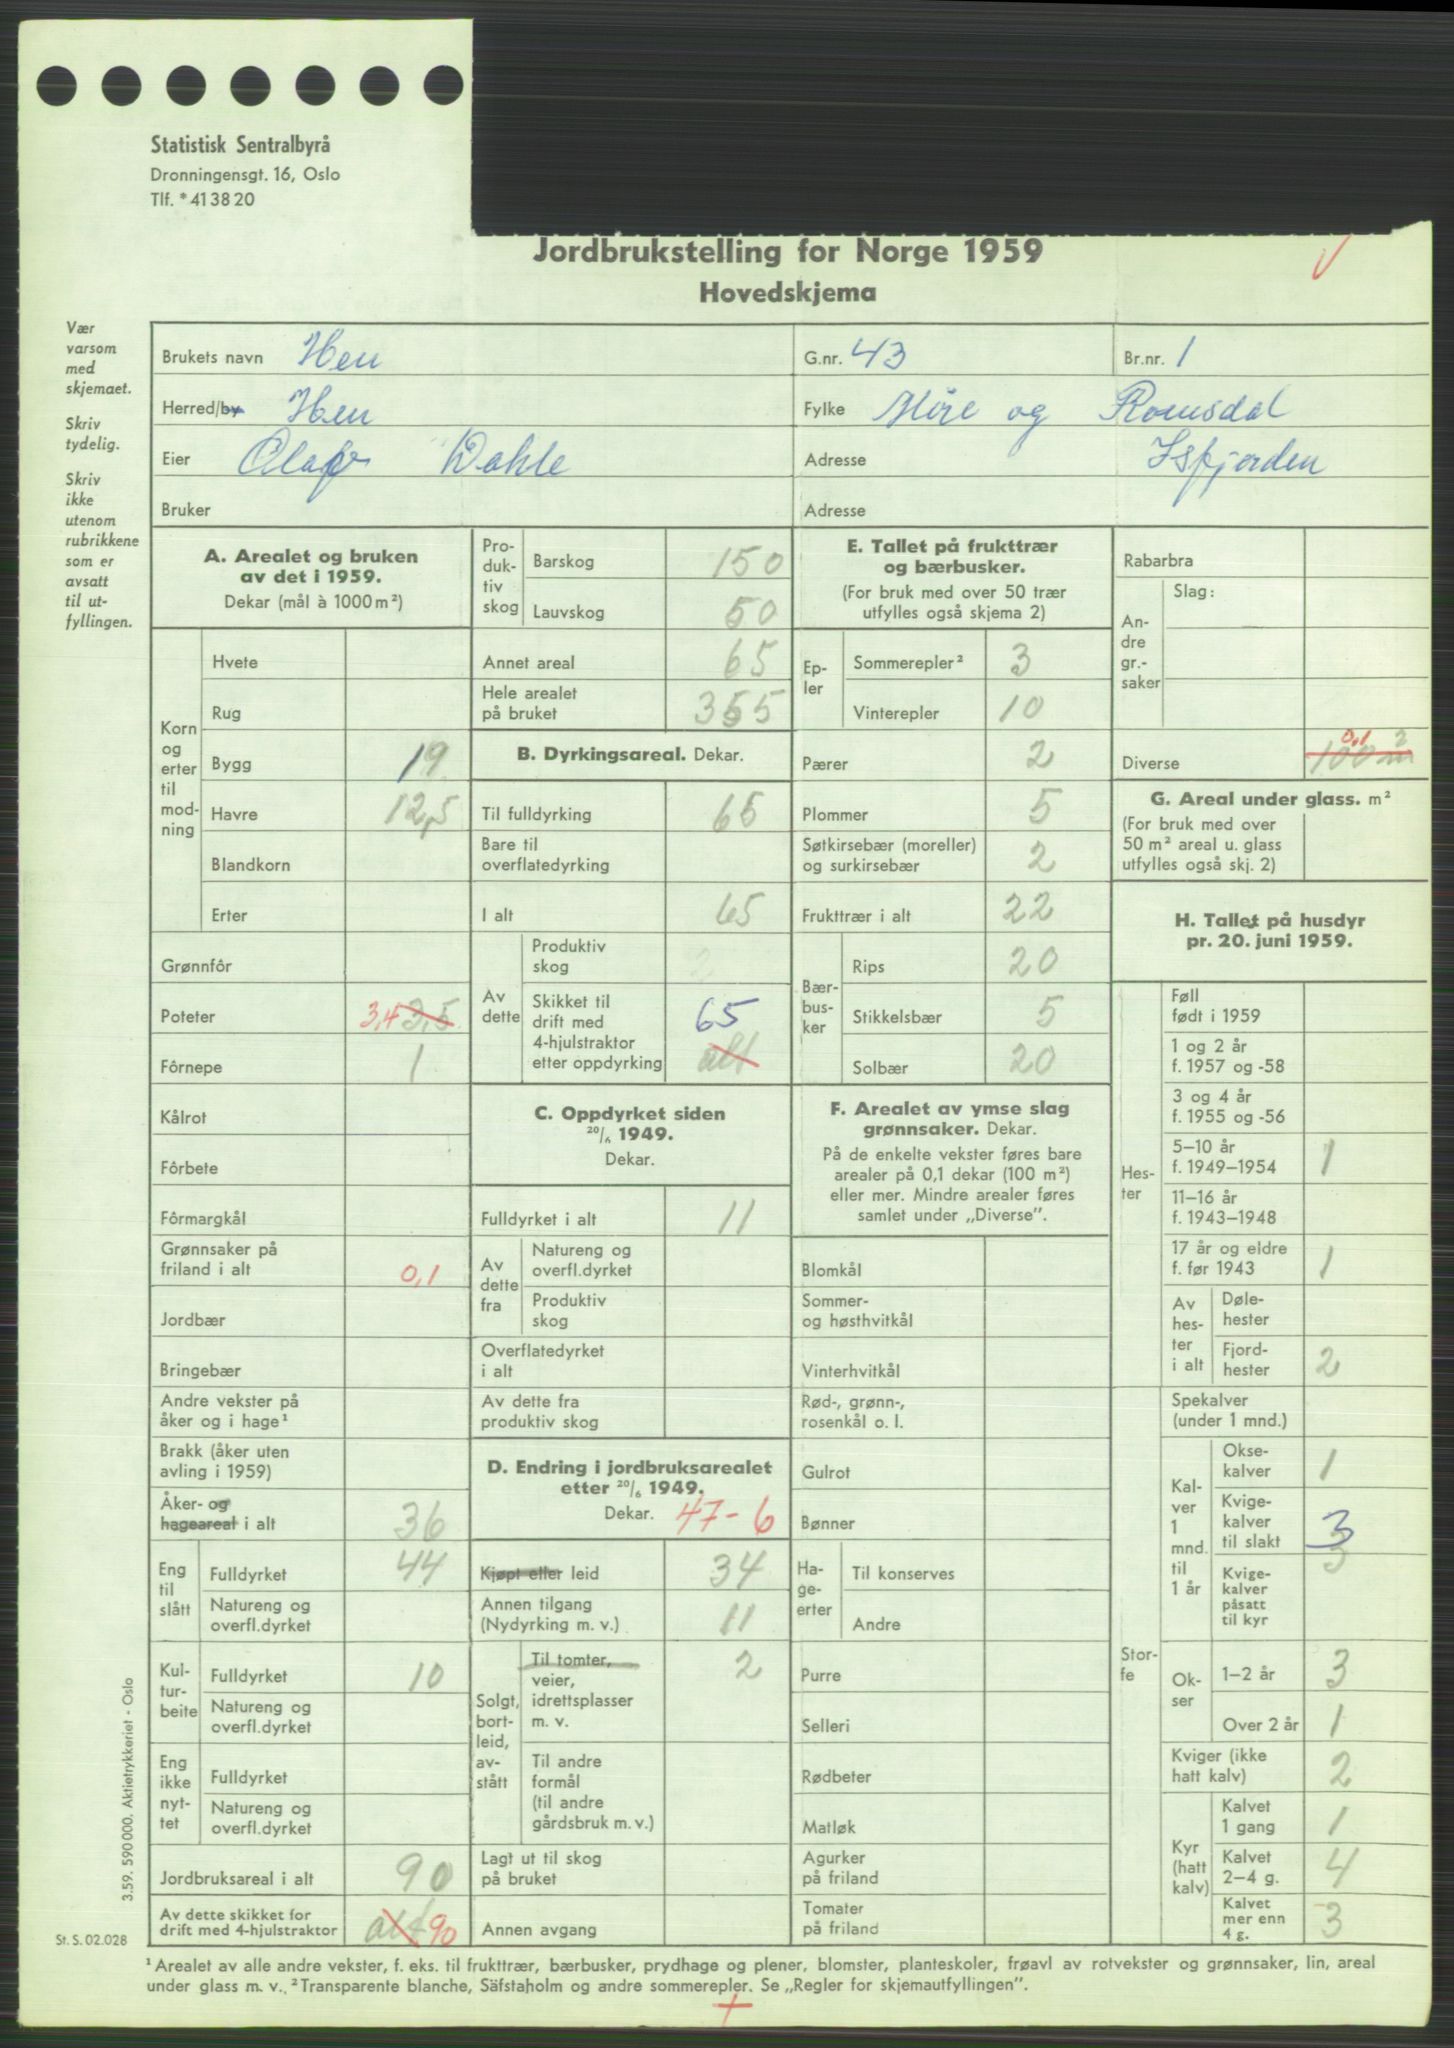 Statistisk Sentralbyrå
Dronningensgt. 16, Oslo
Tlf. * 41 38 20
Jordbrukstelling for Norge 1959
Hovedskjema
Vær
varsom
med
skjemaet.
Skriv
tydelig.
Skriv
ikke
utenom
rubrikkene
som er
avsatt
til ut-
fyllingen.
Brukets navn Hen G.nr. 43 Br.nr. 1
Herred/by Hen Fylke Møre og Romsdal
Eier Olaf Dahle Adresse Isfjorden
Bruker Adresse
A. Arealet og bruken
av det i 1959.
Dekar (mål à 1000 m²)
Korn
og
erter
til
mod-
ning
Hvete
Rug
Bygg 19
Havre 12,5
Blandkorn
Erter
Grønnfôr
Poteter 3,4 3,5
Fôrnepe 1
Kålrot
Fôrbete
Fôrmargkål
Grønnsaker på
friland i alt 0,1
Jordbær
Bringebær
Andre vekster på
åker og i hage ¹
Brakk (åker uten
avling i 1959)
Åker- og
hageareal i alt 36
Eng
til
slått
Fulldyrket 44
Natureng og
overfl.dyrket
Kul-
tur-
beite
Fulldyrket 10
Natureng og
overfl.dyrket
Eng
ikke
nyt-
tet
Fulldyrket
Natureng og
overfl.dyrket
Jordbruksareal i alt 90
Av dette skikket for
drift med 4-hjulstraktor alt 90
Pro-
duk-
tiv
skog
Barskog 150
Lauvskog 50
Annet areal 65
Hele arealet
på bruket 355
B. Dyrkingsareal. Dekar.
Til fulldyrking 65
Bare til
overflatedyrking
I alt 65
Av
dette
Produktiv
skog
Skikket til
drift med
4-hjulstraktor
etter oppdyrking 65 alt
C. Oppdyrket siden
20/6 1949.
Dekar.
Fulldyrket i alt 11
Av
dette
fra
Natureng og
overfl.dyrket
Produktiv
skog
Overflatedyrket
i alt
Av dette fra
produktiv skog
D. Endring i jordbruksarealet
etter 20/6 1949.
Dekar. 47-6
Kjøpt eller leid 34
Annen tilgang
(Nydyrking m. v.) 11
Solgt,
bort-
leid,
av-
stått
Til tomter,
veier,
idrettsplasser
m. v. 2
Til andre
formål
(til andre
gårdsbruk m. v.)
Lagt ut til skog
på bruket
Annen avgang
E. Tallet på frukttrær
og bærbusker.
(For bruk med over 50 trær
utfylles også skjema 2)
Ep-
ler
Sommerepler ² 3
Vinterepler 10
Pærer 2
Plommer 5
Søtkirsebær (moreller)
og surkirsebær 2
Frukttrær i alt 22
Bær-
bus-
ker
Rips 20
Stikkelsbær 5
Solbær 20
F. Arealet av ymse slag
grønnsaker. Dekar.
På de enkelte vekster føres bare
arealer på 0,1 dekar (100 m²)
eller mer. Mindre arealer føres
samlet under „Diverse”.
Blomkål
Sommer-
og høsthvitkål
Vinterhvitkål
Rød-, grønn-,
rosenkål o. l.
Gulrot
Bønner
Ha-
ge-
erter
Til konserves
Andre
Purre
Selleri
Rødbeter
Matløk
Agurker
på friland
Tomater
på friland
Rabarbra
An-
dre
gr.-
saker
Slag:
Diverse 0,1 100 m²
G. Areal under glass. m²
(For bruk med over
50 m² areal u. glass
utfylles også skj. 2)
H. Tallet på husdyr
pr. 20. juni 1959.
Hes-
ter
Føll
født i 1959
1 og 2 år
f. 1957 og -58
3 og 4 år
f. 1955 og -56
5–10 år
f. 1949–1954 1
11–16 år
f. 1943–1948
17 år og eldre
f. før 1943 1
Av
hes-
ter
i alt
Døle-
hester
Fjord-
hester 2
Stor-
fe
Spekalver
(under 1 mnd.)
Kal-
ver
1
mnd.
til
1 år
Okse-
kalver 1
Kvige-
kalver
til slakt 3
Kvige-
kalver
påsatt
til kyr 3
Ok-
ser
1–2 år 3
Over 2 år 1
Kviger (ikke
hatt kalv) 2
Kyr
(hatt
kalv)
Kalvet
1 gang 1
Kalvet
2–4 g. 4
Kalvet
mer enn
4 g. 3
3.59. 590 000. Aktietrykkeriet - Oslo
St. S. 02.028
¹ Arealet av alle andre vekster, f. eks. til frukttrær, bærbusker, prydhage og plener, blomster, planteskoler, frøavl av rotvekster og grønnsaker, lin, areal
under glass m. v. ² Transparente blanche, Säfstaholm og andre sommerepler. Se „Regler for skjemautfyllingen”.